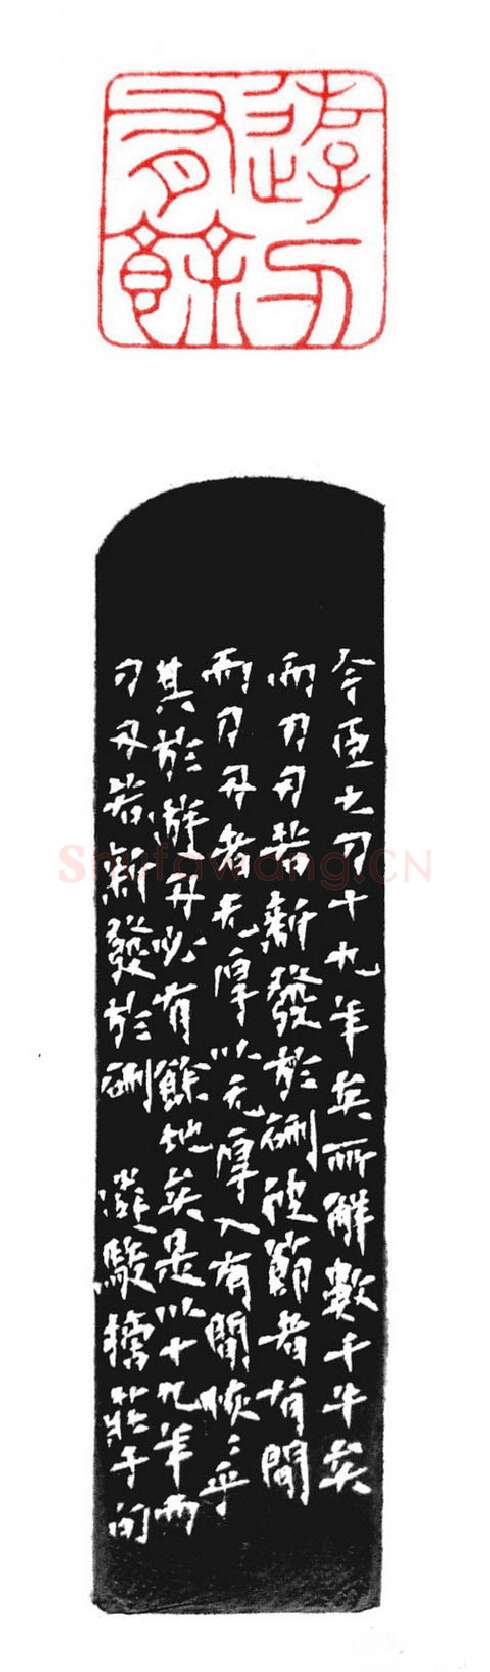 遊刃
有餘
今臣之刀十九年矣所解數千牛矣
而刀刃若新發於硎彼節者有間
而刀刃者无厚以无厚入有間恢〻乎
其於游刃必有餘地矣是以十九年而
刀刃若新發於硎 駿莊子
Shufawang.CN